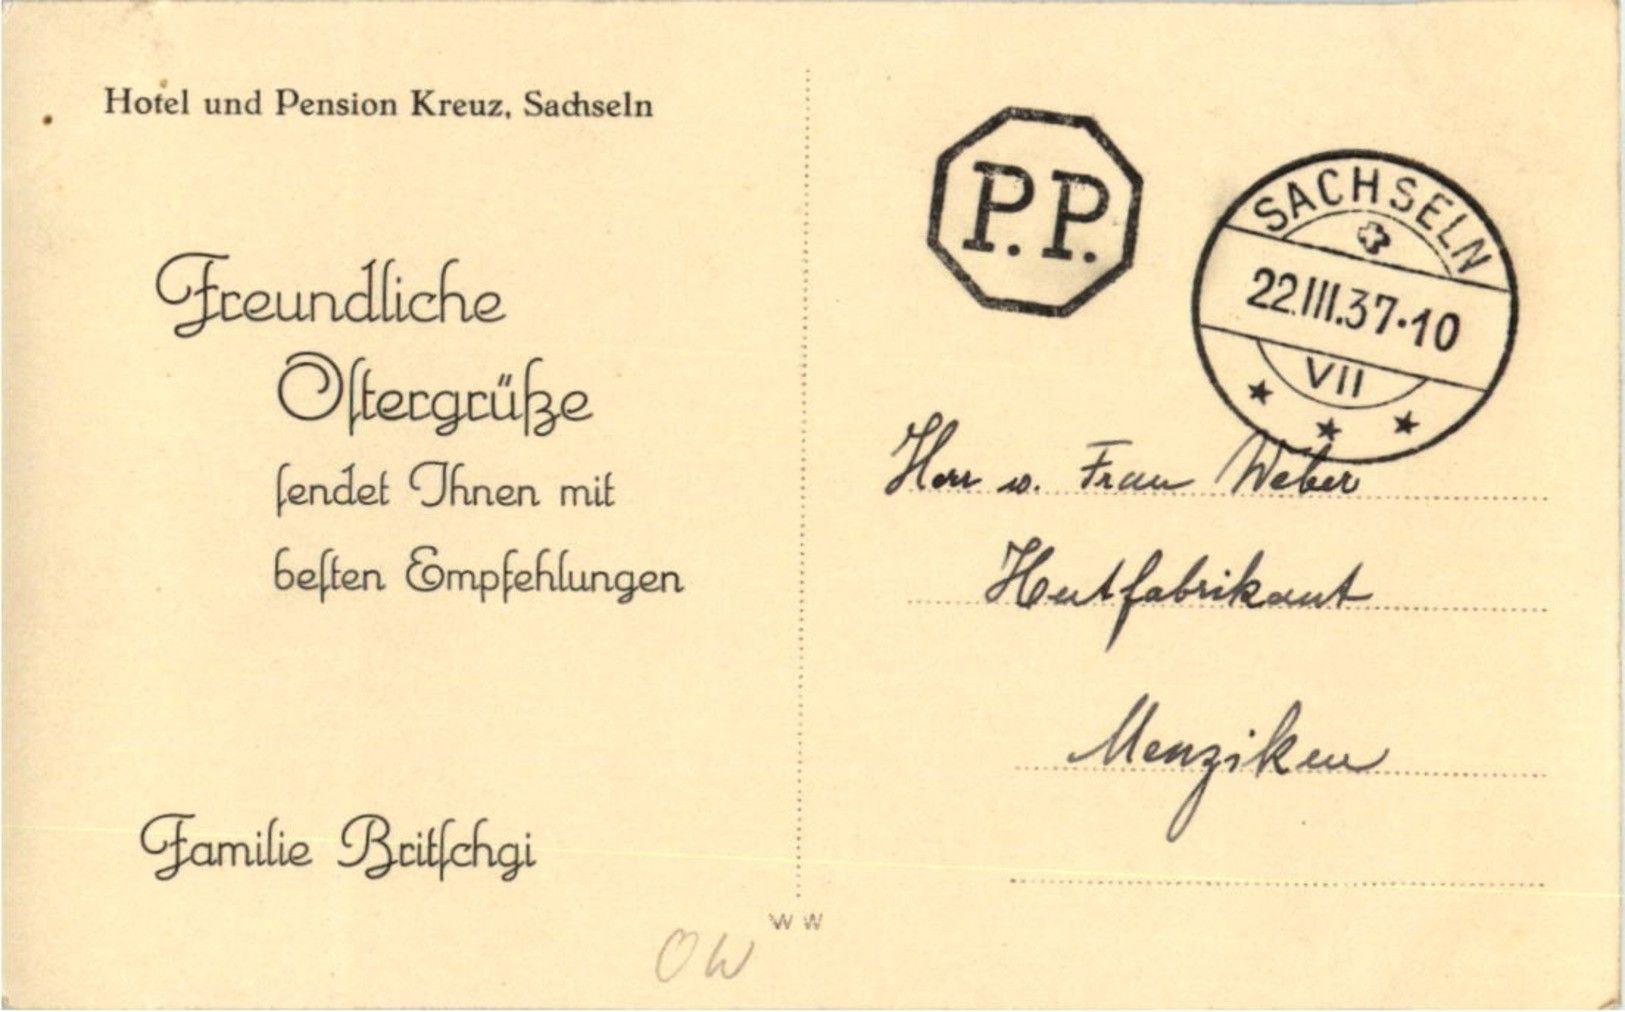 Hotel und Pension Kreuz, Sachseln
Freundliche
Oſtergrüße
ſendet Ihnen mit
beſten Empfehlungen
Familie Britſchgi
P.P.
SACHSELN
22.III.37·10
VII
Herr u. Frau Weber
Hutfabrikant
Menziken
W W
OW